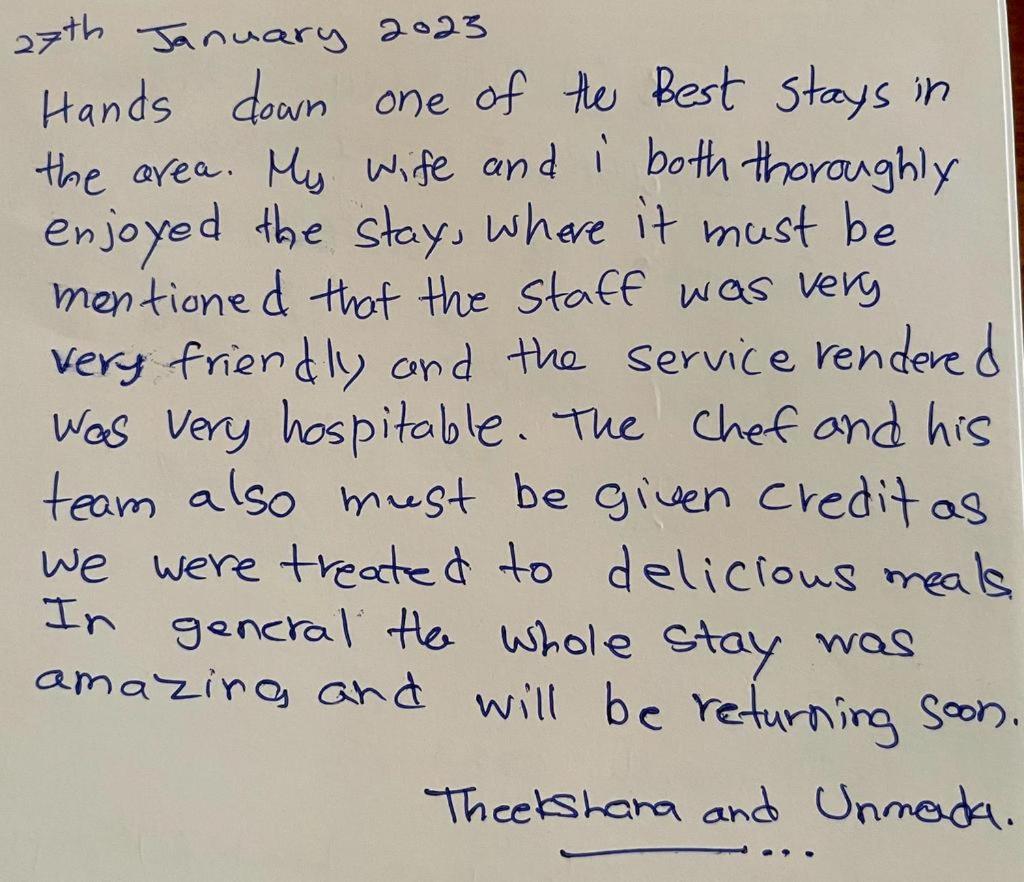 27th January 2023
Hands down one of the Best stays in
the area. My wife and i both thoroughly
enjoyed the stay, where it must be
mentioned that the staff was very
very friendly and the service rendered
was very hospitable. The Chef and his
team also must be given credit as
we were treated to delicious meals.
In general the whole stay was
amazing and will be returning soon.
Theekshana and Unmada.